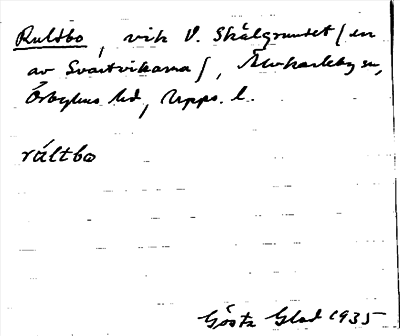 Rultbo, vik V. Skålgrundet (en
av Svartvikarna), Älvkarleby sn,
Örbyhus hd, Upps. l.
ráltbo
Gösta Glad 1935